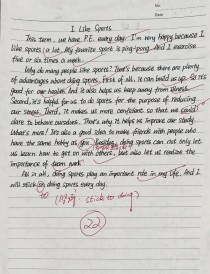 No.
Date
I Like Sports
This term, we have P.E. every day. I'm very happy because I
like sports a lot. My favorite sport is ping-pong. And I exercise
five or six times a week.
Why do many people like sports? That's because there are plenty
of advantages about doing sports. First of all, it can build us up. So it's
good for our health. And it also helps us keep away from illness.
Second, it's helpful for us to do sports for the purpose of reducing
our stress. Third, it makes us more confident so that we could
dare to behave ourselves. That's why it helps us improve our study.
What's more? It's also a good idea to make friends with people who
have the same hobby as you. Besides, doing sports can not only let
us learn how to get on with others, but also let us realize the
importance of team work.
All in all, doing sports play an important role in my life. And I
will stick on doing sports every day.
to
stick to doing
22